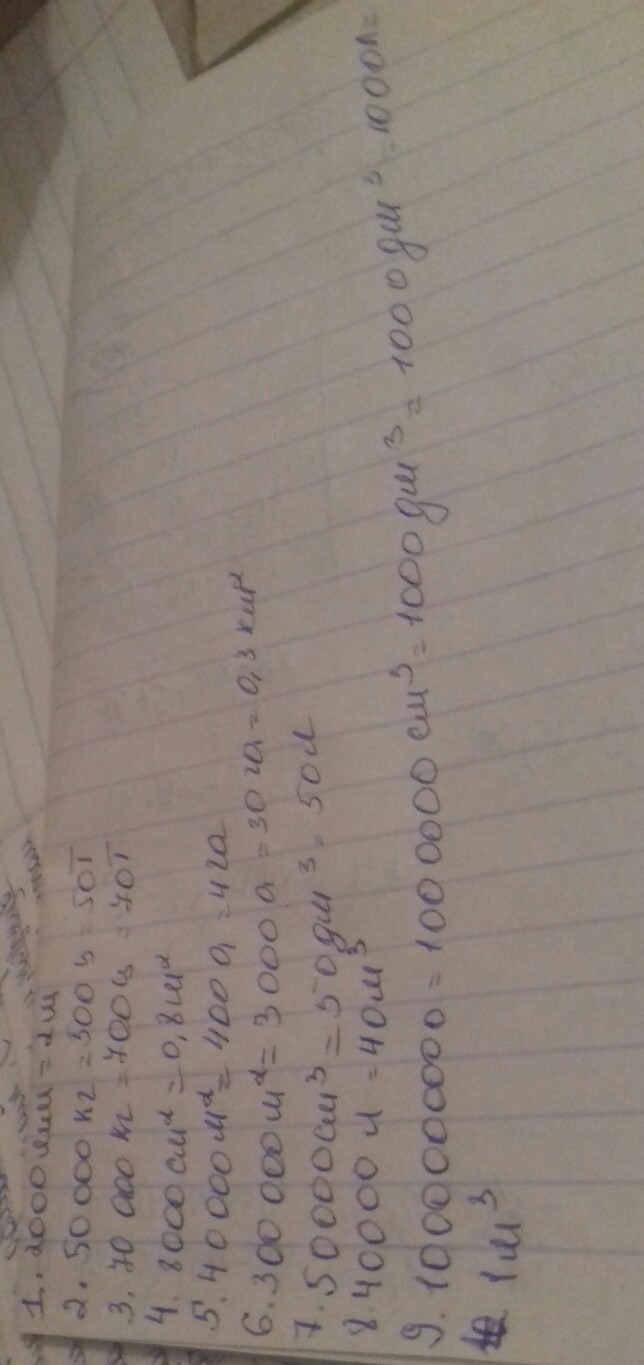 1. 2000 мм = 2 м
2. 50 000 кг = 500 ц = 50 т
3. 70 000 кг = 700 ц = 70 т
4. 8000 см² = 0,8 м²
5. 40 000 м² = 400 а = 4 га
6. 300 000 м² = 3000 а = 30 га = 0,3 км²
7. 50000 см³ = 50 дм³ = 50 л
8. 40000 л = 40 м³
9. 1000000000 = 1000000 см³ = 1000 дм³ = 1000 дм³ = 1000 л =
1 м³